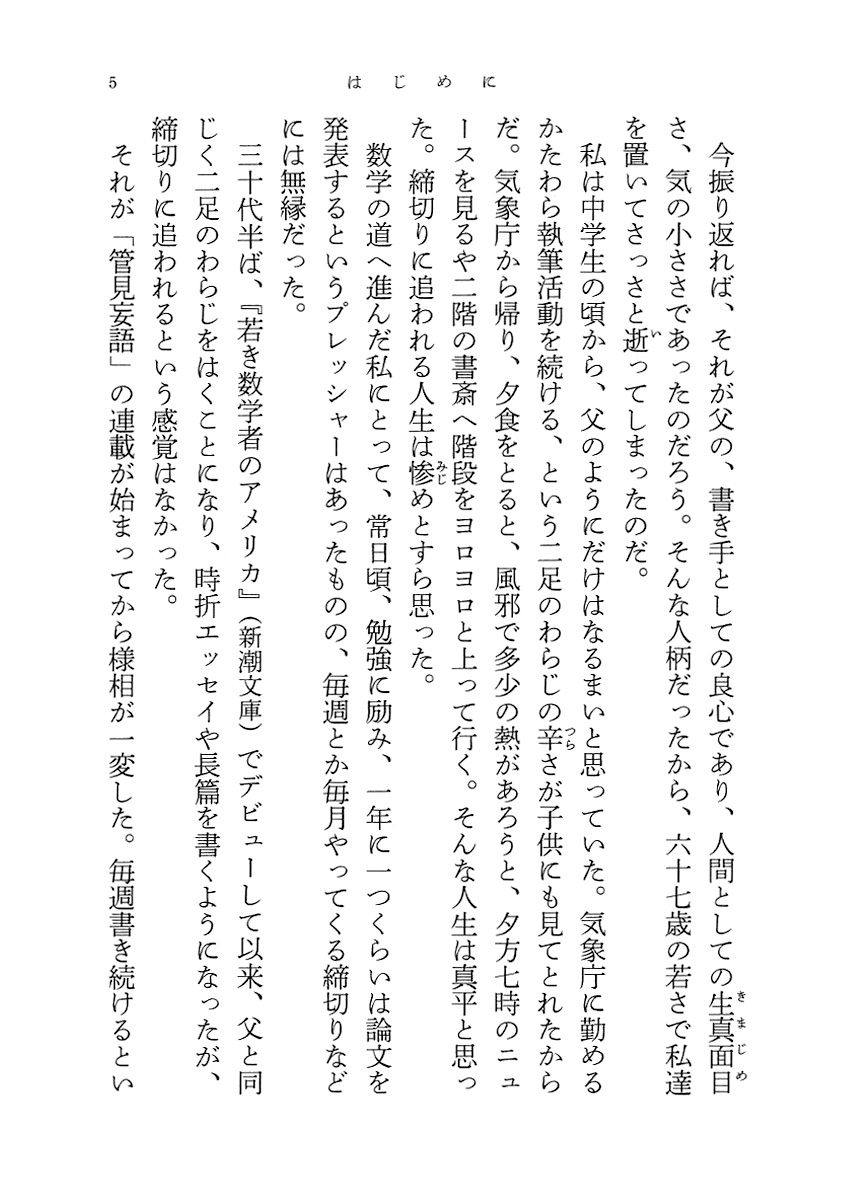 5
はじめに
今振り返れば、それが父の、書き手としての良心であり、人間としての生真面目
さ、気の小ささであったのだろう。そんな人柄だったから、六十七歳の若さで私達
を置いてさっさと逝ってしまったのだ。
私は中学生の頃から、父のようにだけはなるまいと思っていた。気象庁に勤める
かたわら執筆活動を続ける、という二足のわらじの辛さが子供にも見てとれたから
だ。気象庁から帰り、夕食をとると、風邪で多少の熱があろうと、夕方七時のニュ
ースを見るや二階の書斎へ階段をヨロヨロと上って行く。そんな人生は真平と思っ
た。締切りに追われる人生は惨めとすら思った。
数学の道へ進んだ私にとって、常日頃、勉強に励み、一年に一つくらいは論文を
発表するというプレッシャーはあったものの、毎週とか毎月やってくる締切りなど
には無縁だった。
三十代半ば、『若き数学者のアメリカ』（新潮文庫）でデビューして以来、父と同
じく二足のわらじをはくことになり、時折エッセイや長篇を書くようになったが、
締切りに追われるという感覚はなかった。
それが「管見妄語」の連載が始まってから様相が一変した。毎週書き続けるとい